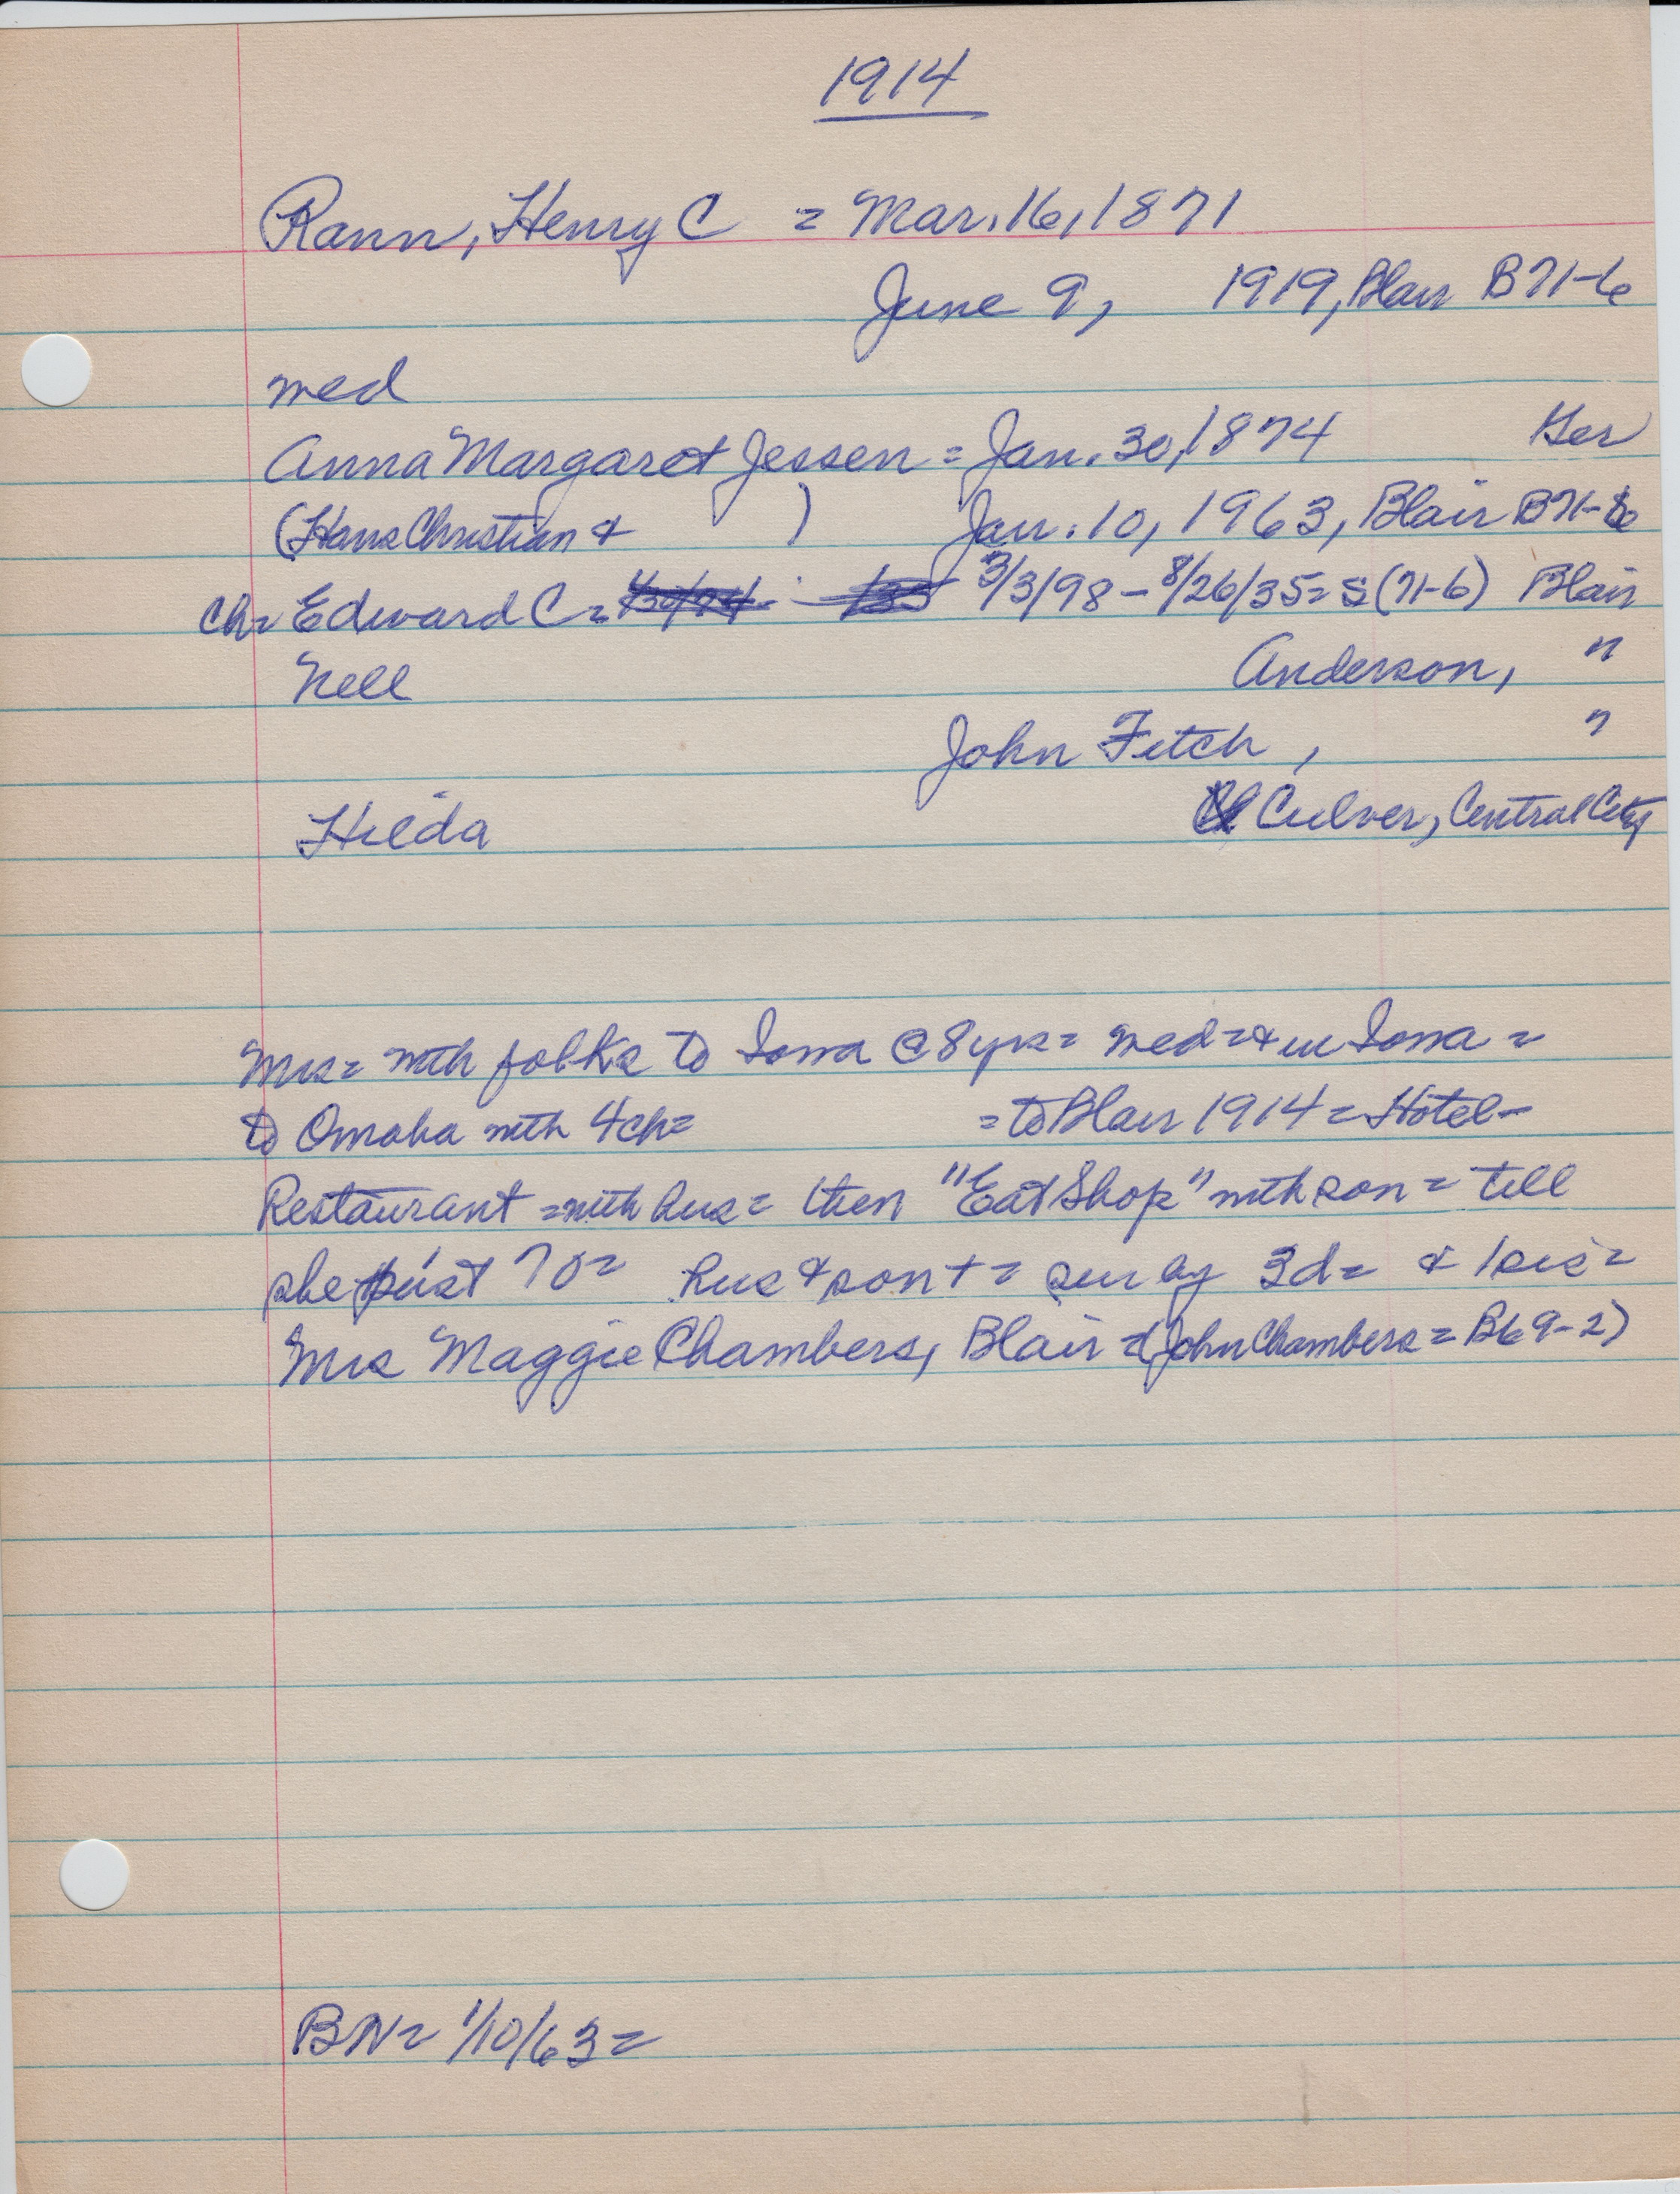 1914
Rann, Henry C = Mar. 16, 1871
June 9, 1919, Blair B71-6
med
Anna Margaret Jessen = Jan. 30, 1874 Ger
(Hans Christian & ) Jan. 10, 1963, Blair B71-6
Ch= Edward C = 3/3/98 - 8/26/35 = S (71-6) Blair
Nell Anderson, "
John Fitch, "
Hilda Culver, Central City
Mrs = with folks to Iowa @ 8 yrs = med = & in Iowa =
to Omaha with 4 ch = = to Blair 1914 = Hotel -
Restaurant = with hus = then "Eat Shop" with son = till
she past 70 = hus & son + = sur by 3d = & 1 sis =
Mrs Maggie Chambers, Blair = (John Chambers = B69-2)
BN = 1/10/63 =